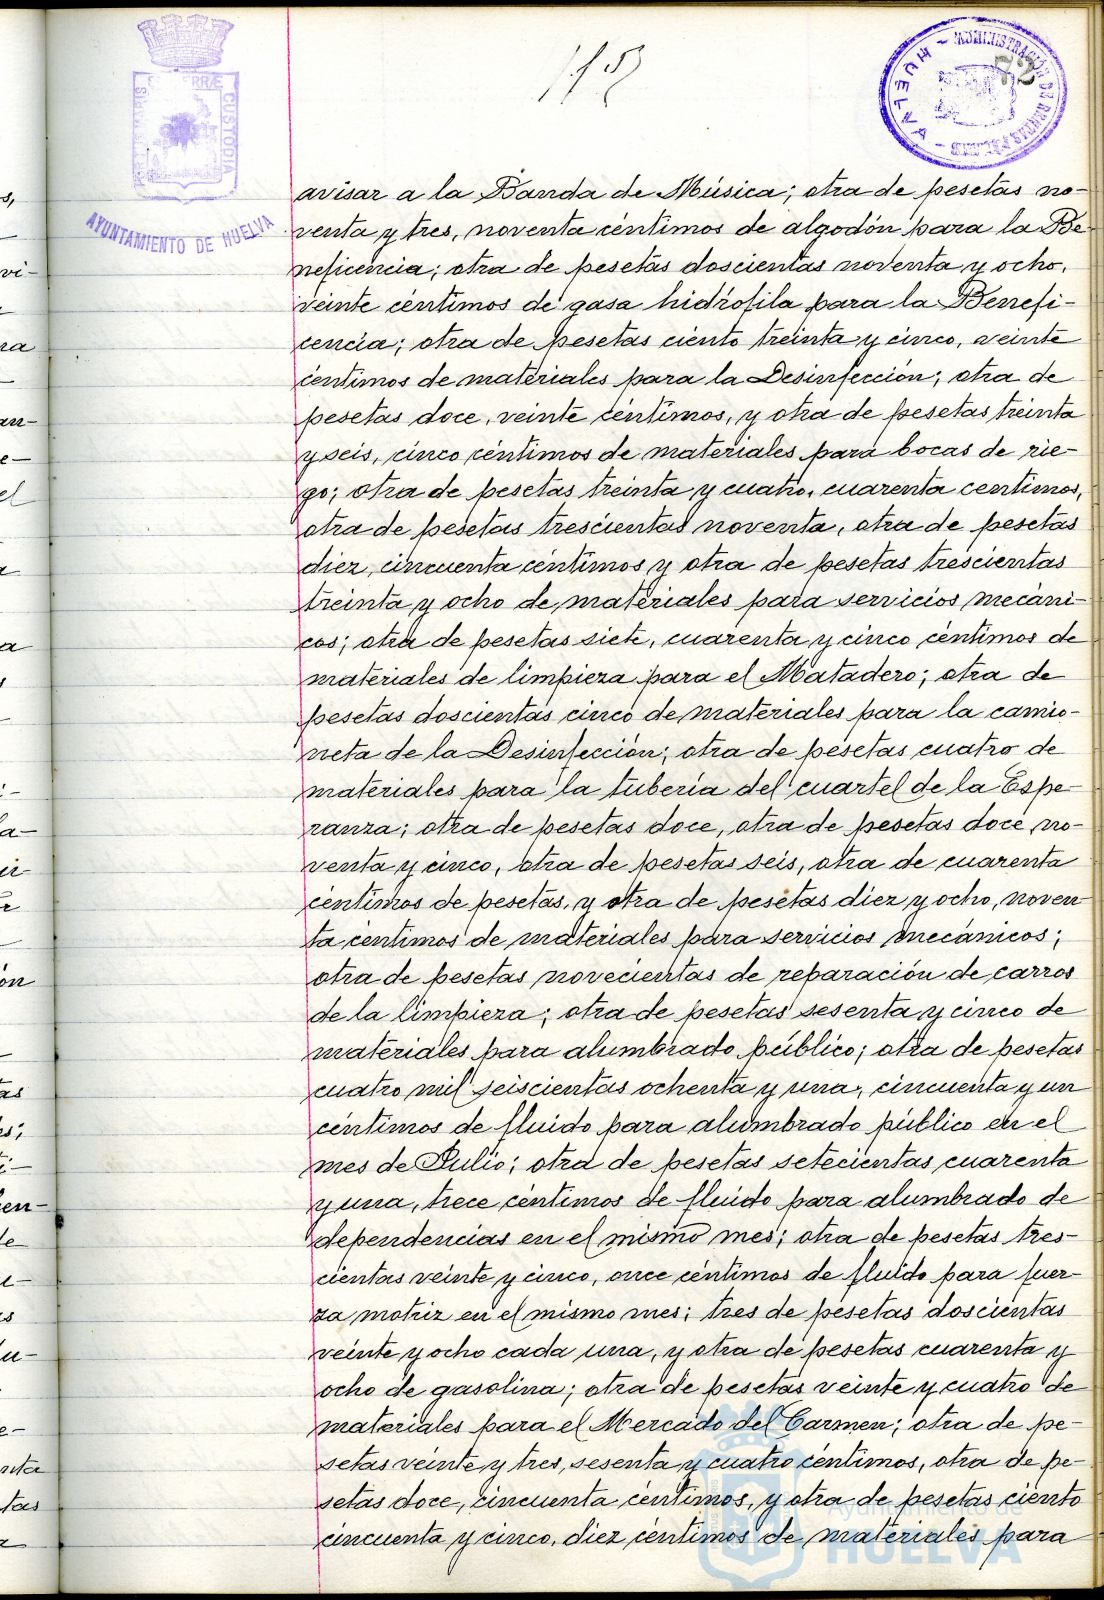 115
72
HUELVA - ADMINISTRACIÓN DE RENTAS
CUSTODI
AYUNTAMIENTO DE HUELVA
avisar a la Banda de Música; otra de pesetas no-
venta y tres, noventa céntimos de algodón para la Be-
neficencia; otra de pesetas doscientas noventa y ocho,
veinte céntimos de gasa hidrófila para la Benefi-
cencia; otra de pesetas ciento treinta y cinco, veinte
céntimos de materiales para la Desinfección; otra de
pesetas doce, veinte céntimos, y otra de pesetas treinta
y seis, cinco céntimos de materiales para bocas de rie-
go; otra de pesetas treinta y cuatro, cuarenta centimos,
otra de pesetas trescientas noventa, otra de pesetas
diez, cincuenta céntimos y otra de pesetas trescientas
treinta y ocho de materiales para servicios mecáni-
cos; otra de pesetas siete, cuarenta y cinco céntimos de
materiales de limpieza para el Matadero; otra de
pesetas doscientas cinco de materiales para la camio-
neta de la Desinfección; otra de pesetas cuatro de
materiales para la tubería del cuartel de la Espe-
ranza; otra de pesetas doce, otra de pesetas doce, no-
venta y cinco, otra de pesetas seis, otra de cuarenta
céntimos de pesetas, y otra de pesetas diez y ocho, noven
ta céntimos de materiales para servicios mecánicos;
otra de pesetas novecientas de reparación de carros
de la limpieza; otra de pesetas sesenta y cinco de
materiales para alumbrado público; otra de pesetas
cuatro mil seiscientas ochenta y una, cincuenta y un
céntimos de fluido para alumbrado público en el
mes de Julio; otra de pesetas setecientas cuarenta
y una, trece céntimos de fluido para alumbrado de
dependencias en el mismo mes; otra de pesetas tres-
cientas veinte y cinco, once céntimos de fluido para fuer-
za motriz en el mismo mes; tres de pesetas doscientas
veinte y ocho cada una, y otra de pesetas cuarenta y
ocho de gasolina; otra de pesetas veinte y cuatro de
materiales para el Mercado del Carmen; otra de pe-
setas veinte y tres, sesenta y cuatro céntimos, otra de pe-
setas doce, cincuenta céntimos, y otra de pesetas ciento
cincuenta y cinco, diez céntimos de materiales para
Ayuntamiento de
HUELVA